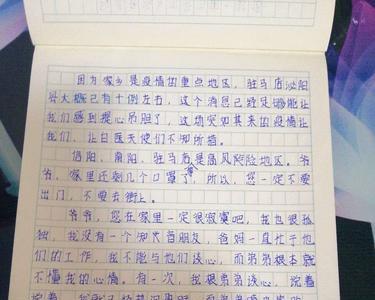 因为家乡是疫情的重点地区，驻马店泌阳
县大概已有十例左右，这个消息已经足够能让
我们感到提心吊胆了，这场突如其来的疫情让
我们、让白医天使们不知所措。
信阳、南阳、驻马店等是高风险地区。爷
爷，家里还剩几个口罩了，所以，您一定不要
出门，不要去街上。
爷爷，您在家里一定很寂寞吧，我也很孤
独，我没有一个知心朋友，爸妈一直忙于他
们的工作，我不能与他们谈心，而弟弟根本就
不懂我的心情。有一次，我跟弟弟谈心，说着
说着，